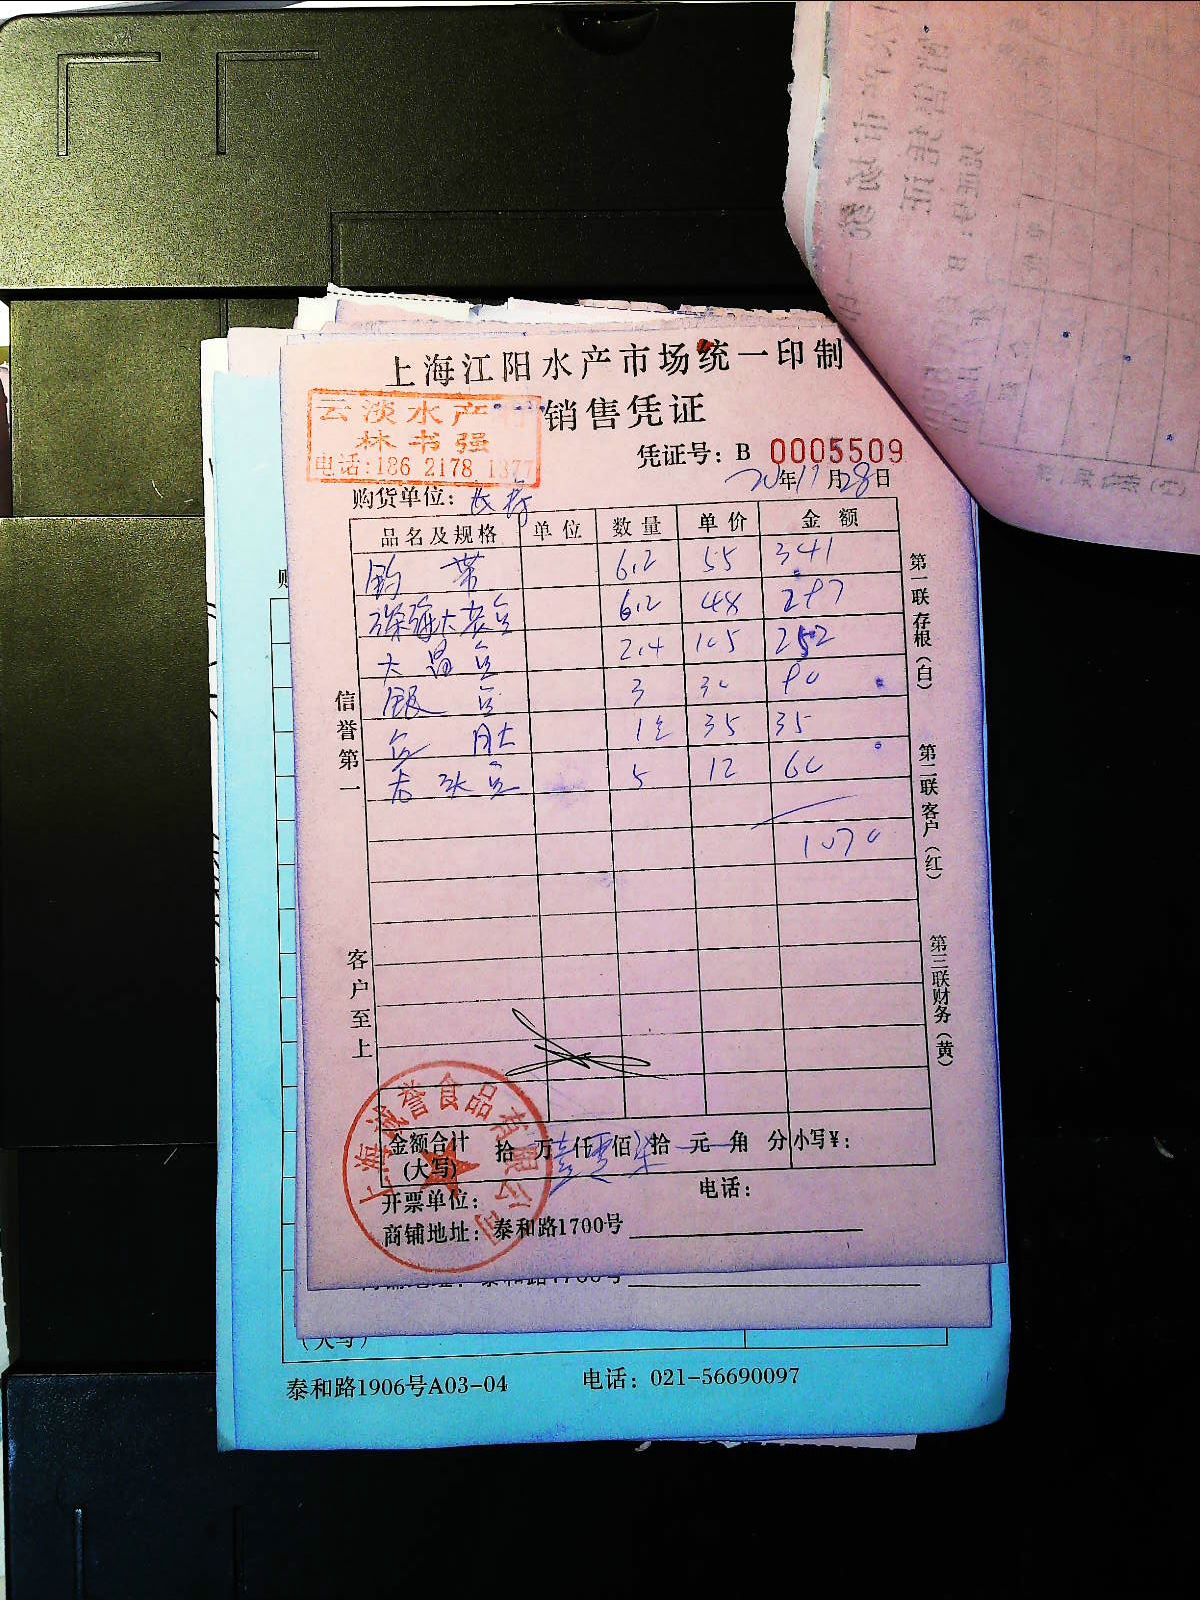 上海江阳水产市场统一印制
云淡水产行 销售凭证
林书强
电话:186 2178 1377
凭证号: B 0005509
20年11月28日
购货单位:
品名及规格 单位 数量 单价 金额
钓 带 6.2 55 341
6.2 48 297
大 昌鱼 2.4 105 252
银 鱼 3 30 90
鱼 肚 1包 35 35
5 12 60
1070
信誉第一
客户至上
第一联存根(白)
第二联客户(红)
第三联财务(黄)
上海诚誉食品有限公司
金额合计(大写) 拾 万壹仟零佰柒拾 元 角 分 小写¥:
开票单位: 电话:
商铺地址: 泰和路1700号
商铺地址: 泰和路1700号
(大写)
泰和路1906号A03-04 电话: 021-56690097